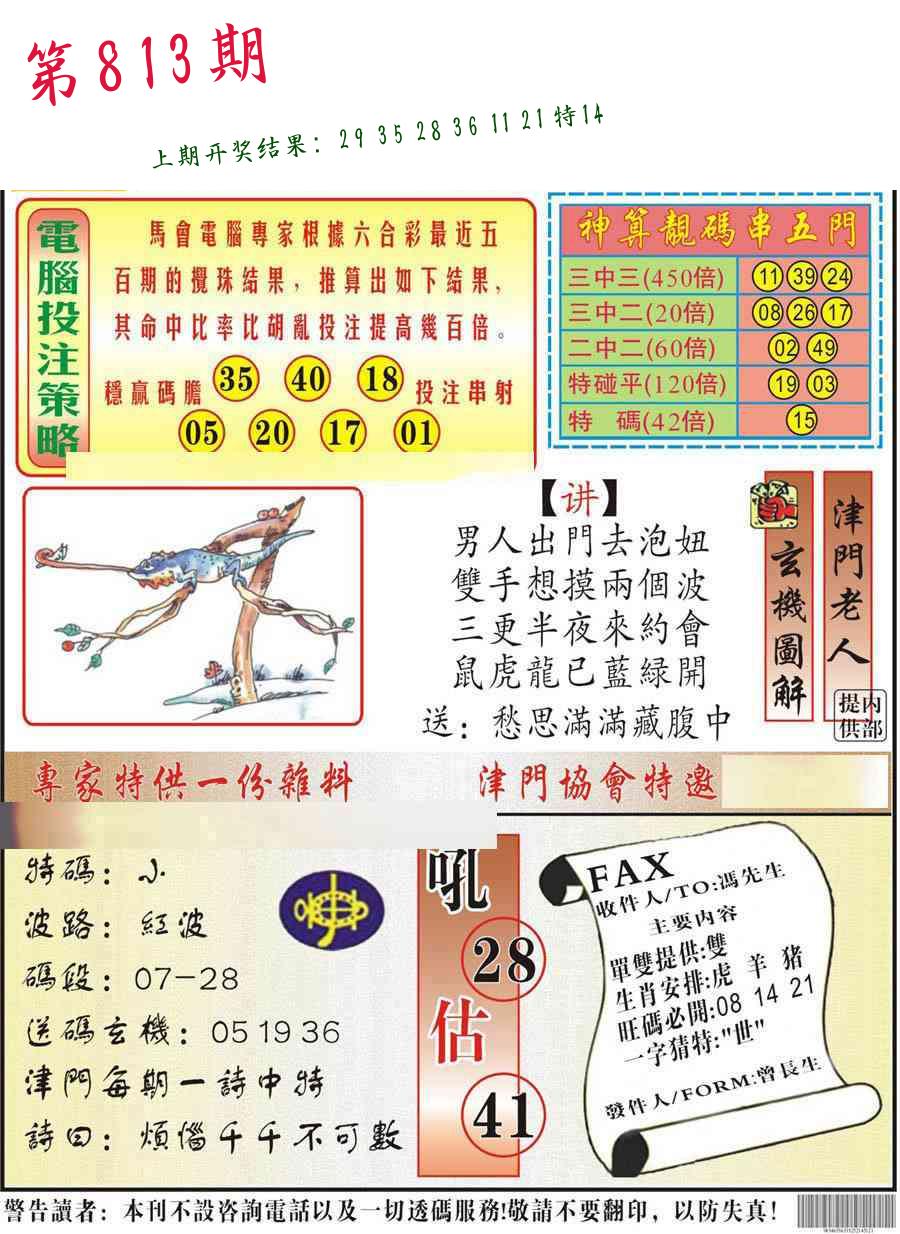 第813期
上期开奖结果：29 35 28 36 11 21特14
電腦投注策略
馬會電腦專家根據六合彩最近五
百期的攪珠結果，推算出如下結果，
其命中比率比胡亂投注提高幾百倍。
穩贏碼膽 35 40 18 投注串射
05 20 17 01
神算靚碼串五門
三中三(450倍) 11 39 24
三中二(20倍) 08 26 17
二中二(60倍) 02 49
特碰平(120倍) 19 03
特 碼(42倍) 15
【讲】
男人出門去泡妞
雙手想摸兩個波
三更半夜來約會
鼠虎龍已藍緑開
送：愁思滿滿藏腹中
玄機圖解
津門老人
内部提供
專家特供一份雜料
津門協會特邀
特碼：小
波路：紅波
碼段：07-28
送碼玄機：05 19 36
津門每期一詩中特
詩曰：煩惱千千不可數
吼
28
估
41
FAX
收件人/TO:馮先生
主要内容
單雙提供:雙
生肖安排:虎 羊 豬
旺碼必開:08 14 21
一字猜特:"世"
發件人/FORM:曾長生
警告讀者：本刊不設咨詢電話以及一切透碼服務!敬請不要翻印，以防失真！